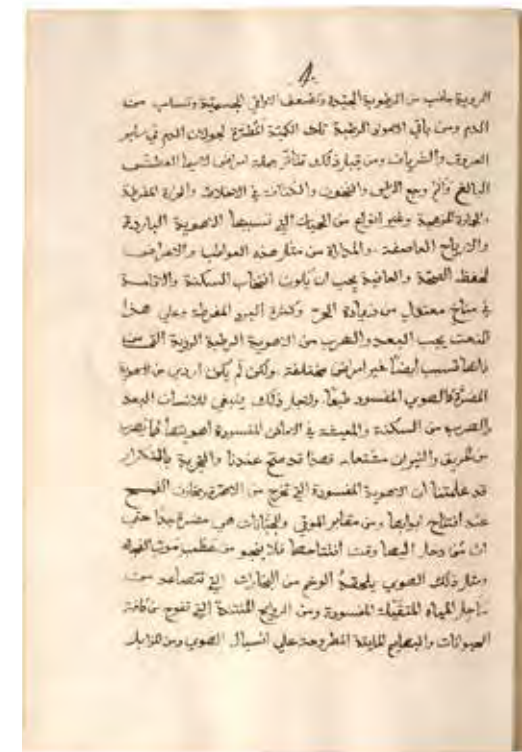 الروية جلب من الرطوبة الجيدة وتضعف القواي الجسمية وتسلب منه
الدم ومن باقي الامور الرطبة تلك الكمية المضرة لجولان الدم في ساير
العروق والشريانات ومن قبل ذلك تتأثر جملة امراض لاسيما العطش
البالغ والم وجع الراس والسخون والخناق في الاخلاط والحرارة المفرطة
وغير انواع من الحميات التي تسببها الاهوية الباردة
والارياح العاصفة والمداراة من مثل هذه العواطب والاعراض
لحفظ الصحة والعافية يجب ان يكون انتخاب السكنة والاقامة
في مناخ معتدل من زيادة الحر وكثرة البرد المفرطة وعلى هذا
النعت يجب البعد والهرب من الاهوية الرطبة الردية التي منها
تسبب ايضًا غير امراض مختلفة ولكن لم يكن اردى من الاهوية
المضرة كالهوي المفسود طبعًا ولاجل ذلك ينبغي للانسان البعد
والهرب من السكنة والمعيشة في الاماكن المفسودة اهويتها كما يهرب
من الحريق والنيران مشتعلة فهذا قد صح عندنا والتجربة بالتكرار
قد علمتنا ان الاهوية المفسودة التي تخرج من
عند افتتاح ابوابها ومن مقابر الموتى والجنازات هي مضرة جدًا حتى
ان من دخل اليها وقت افتتاحها فلا ينجو من عطب موت الفجاة
ومثل ذلك الهوي يلحقه الوخم من البخارات التي تتصاعد من
المياه المفسودة ومن الروايح المنتنة التي تفوح من كافة
الحيوانات والبهايم المايتة المطروحة على الهوي ومن المزابل